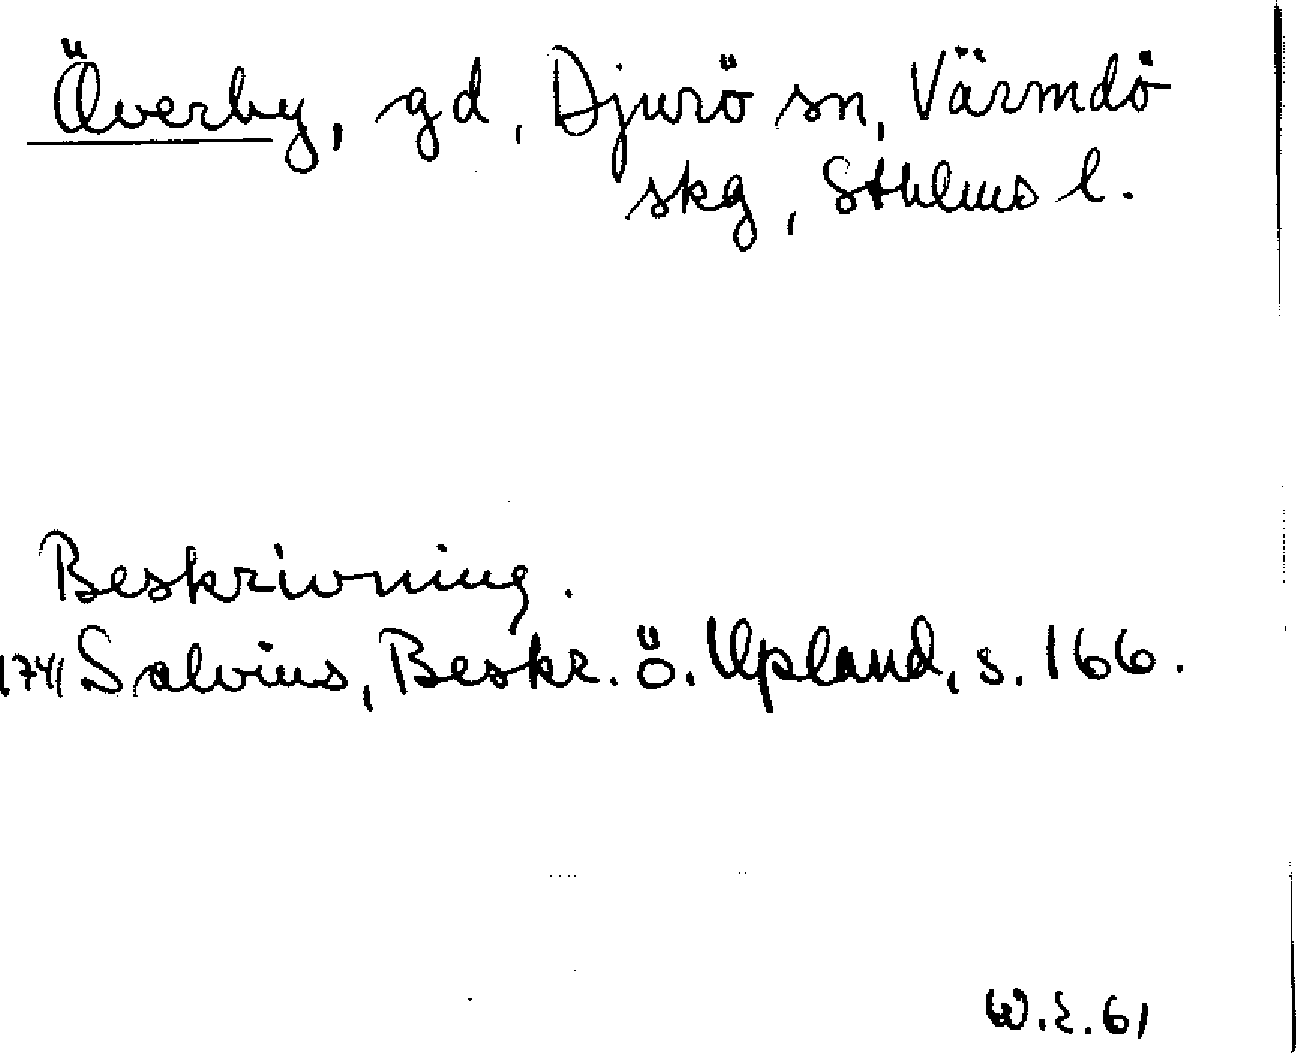 Överby, gd, Djurö sn, Värmdö
skg, Sthlms l.
Beskrivning.
1741 Salvius, Beskr. ö. Upland, s. 166.
W.E. 61